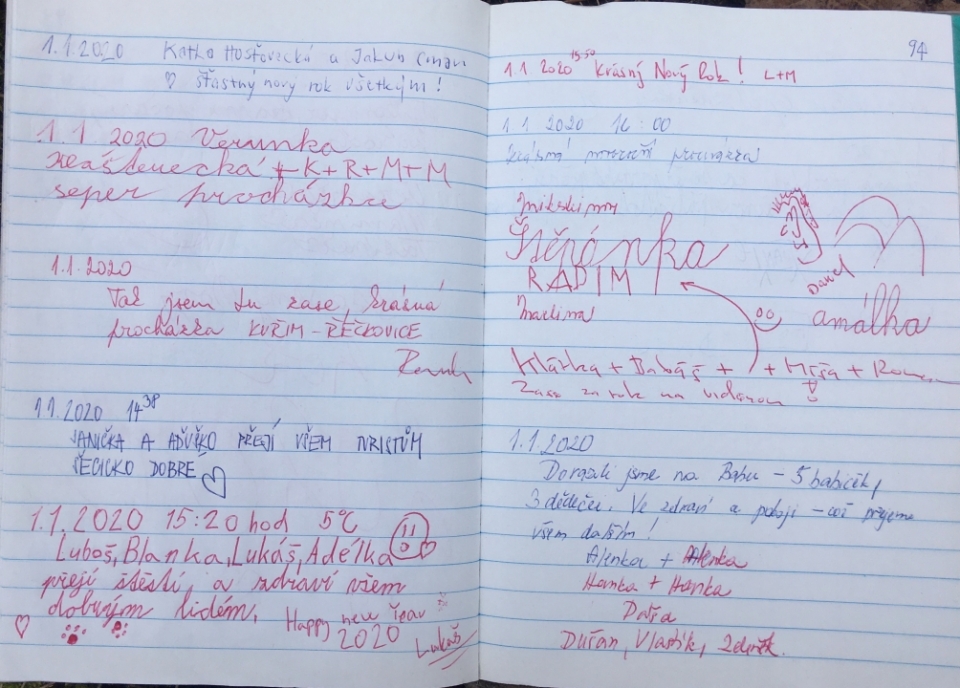 1.1.2020 Katka Hosťovecká a Jakub
♡ šťastný nový rok všetkým!
1.1 2020 Verunka
+ K+R+M+M
seper procházka
1.1.2020
Tak jsem tu zase, krásná
procházka KUŘIM-ŘEČKOVICE
1.1.2020 14 38
JANIČKA A AĎUŠKO PŘEJÍ VŠEM TURISTŮM
VŠECICKO DOBRÉ ♡
1.1.2020 15:20 hod 5°C
Luboš, Blanka, Lukáš, Adélka
přejí štěstí a zdraví všem
dobrým lidem.
Happy new Year
2020
Lukáš
94
1.1 2020 15:50 Krásný Nový Rok! L+M
1 1 2020 16:00
krásná novoroční procházka
Štěpánka
RADIM
Martina
Daniel
amálka
+ Bubáš + + Míša +
Zase za rok na viděnou!
1.1.2020
Dorazili jsme na Babu - 5 babiček,
3 dědečci. Ve zdraví a pokoji - což přejeme
všem dalším!
Alenka + Alenka
Hanka + Hanka
Dáša
Dušan, Vlastík, Zdeněk.